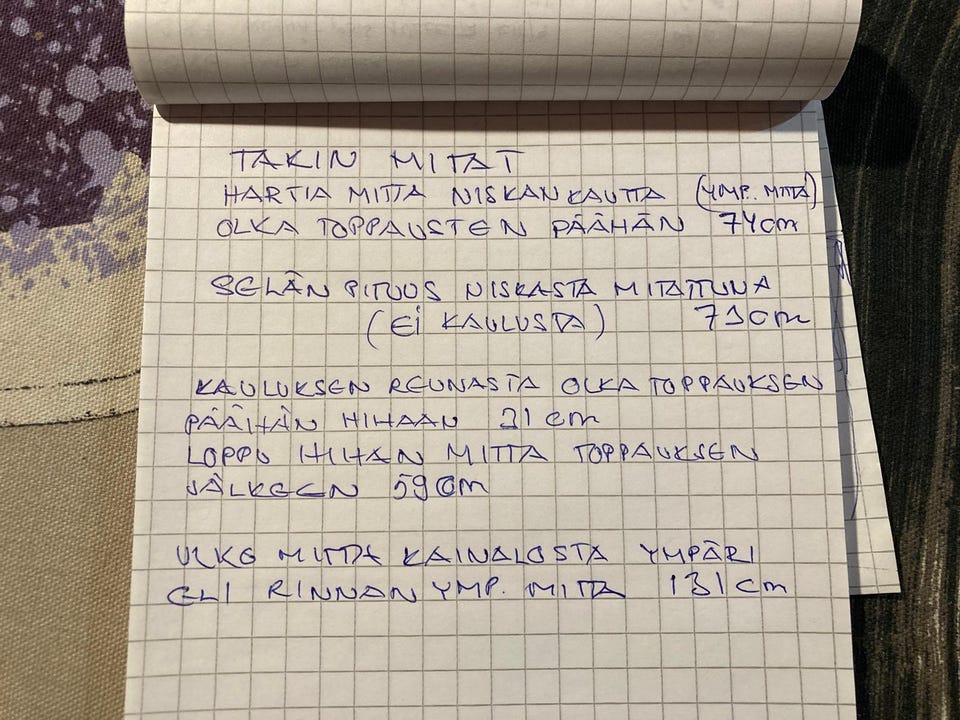 TAKIN MITAT
HARTIA MITTA NISKAN KAUTTA (YMP. MITTA)
OLKA TOPPAUSTEN PÄÄHÄN 74cm
SELÄN PITUUS NISKASTA MITATTUNA
(Ei KAULUSTA) 73cm
KAULUKSEN REUNASTA OLKA TOPPAUKSEN
PÄÄHÄN HIHAAN 31 cm
LOPPU HIHAN MITTA TOPPAUKSEN
JÄLKEEN 59 cm
ULKO MITTA KAINALOSTA YMPÄRI
ELI RINNAN YMP. MITTA 131 cm